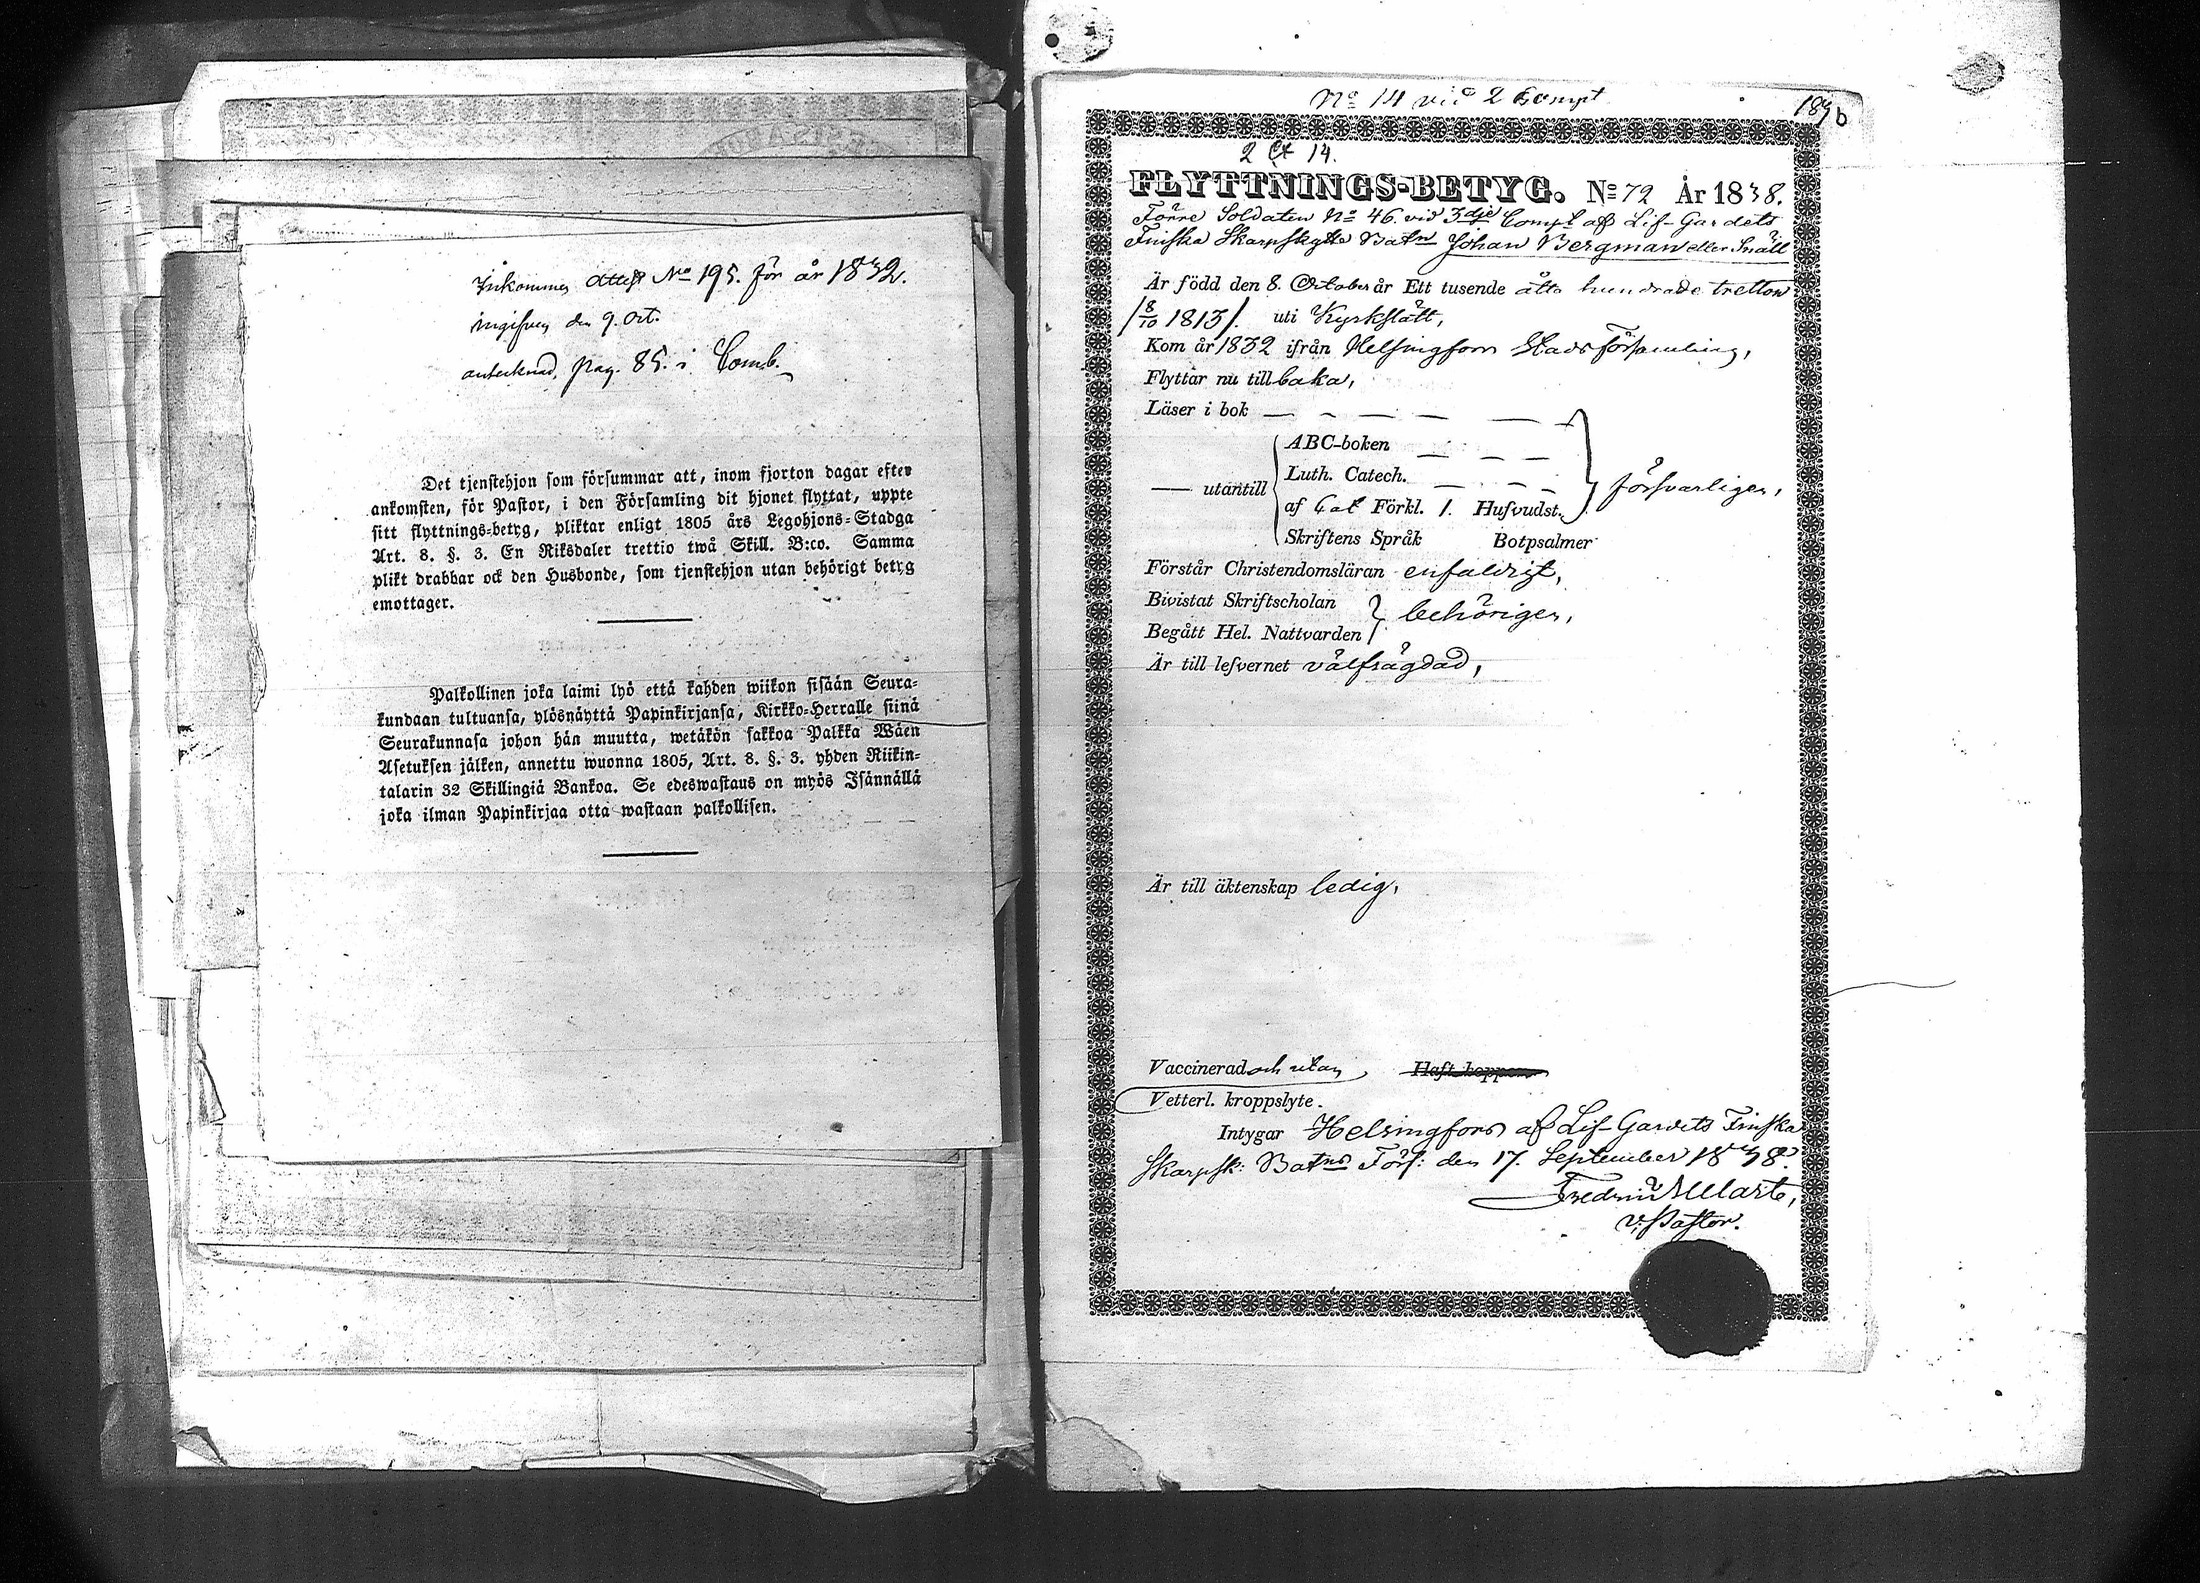 Inkommen attest No 195. för år 1832.
ingifven den 9. Oct.
antecknad, pag. 85. i Comb.
Det tjenstehjon som försummar att, inom fjorton dagar efter
ankomsten, för Pastor, i den Församling dit hjonet flyttat, uppte
sitt flyttnings-betyg, pliktar enligt 1805 års Legohjons-Stadga
Art. 8. §. 3. En Riksdaler trettio twå Skill. B:co. Samma
plikt drabbar ock den Husbonde, som tjenstehjon utan behörigt betyg
emottager.
Palkollinen joka laimi lyö että kahden wiikon sisään Seura-
kundaan tultuansa, ylösnäyttä Papinkirjansa, Kirkko-Herralle siinä
Seurakunnasa johon hän muutta, wetäkön sakkoa Palkka Wäen
Asetuksen jälken, annettu wuonna 1805, Art. 8. §. 3. yhden Riikin-
talarin 32 Skillingiä Bankoa. Se edeswastaus on myös Isännällä
joka ilman Papinkirjaa otta wastaan palkollisen.
No 14 vid 2 Compt
2 Ct 14.
FLYTTNINGS-BETYG. No 72 År 1838.
Förre Soldaten No 46. vid 3dje Compt af Lif-Gardets
Finska Skarpskytte Batn Johan Bergman eller Snäll
Är född den 8. October år Ett tusende åtta hundrade tretton
/ 8/10 1813/. uti Kyrkslätt,
Kom år 1832 ifrån Helsingfors Stads Församling,
Flyttar nu till baka,
Läser i bok — — — — — —
ABC-boken — — — —
Luth. Catech. — — — —
— utantill af Cat Förkl. 1. Hufvudst. försvarligen,
Skriftens Språk Botpsalmer
Förstår Christendomsläran enfaldigt,
Bivistat Skriftscholan behörigen,
Begått Hel. Nattvarden
Är till lefvernet välfrägdad,
Är till äktenskap ledig,
Vaccinerad och utan Haft koppor
Vetterl. kroppslyte.
Intygar Helsingfors af Lif-Gardets Finska
Skarpsk: Batns Förs: den 17. September 1838.
v. Pastor.